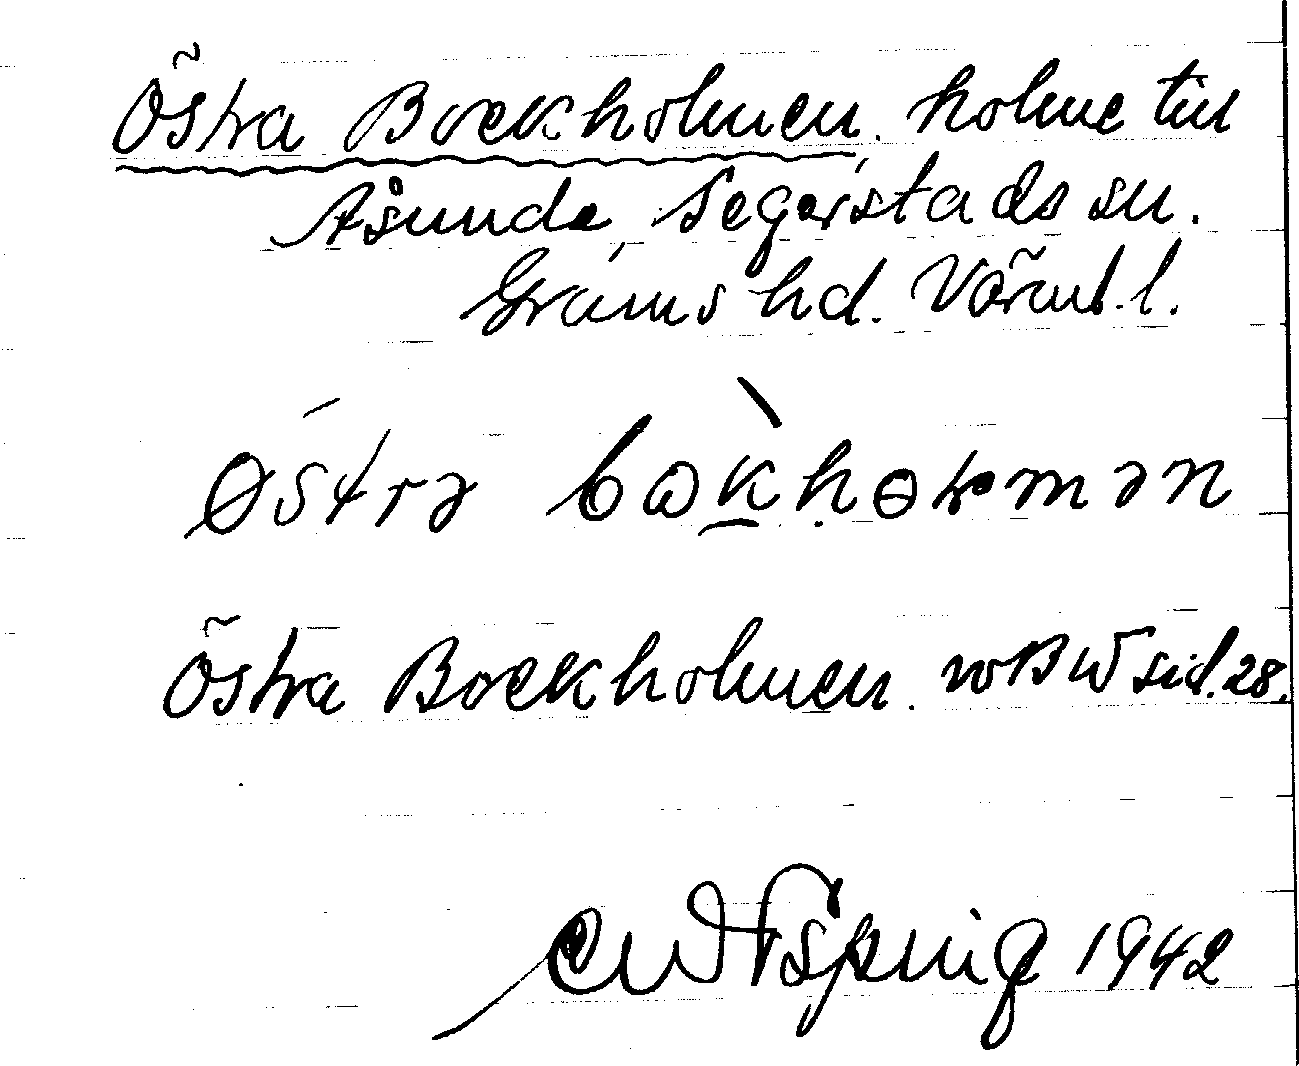 Östra Bockholmen. holme till
Åsunda, Segerstads sn.
Grums hd. Värml. l.
östrə bɷkhɵɽmən
Östra Bockholmen. wBW sid. 28.
1942